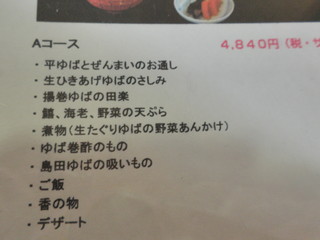 Aコース 4,840円(税・サ
・平ゆばとぜんまいのお通し
・生ひきあげゆばのさしみ
・揚巻ゆばの田楽
・鱚、海老、野菜の天ぷら
・煮物(生たぐりゆばの野菜あんかけ)
・ゆば巻酢のもの
・島田ゆばの吸いもの
・ご飯
・香の物
・デザート